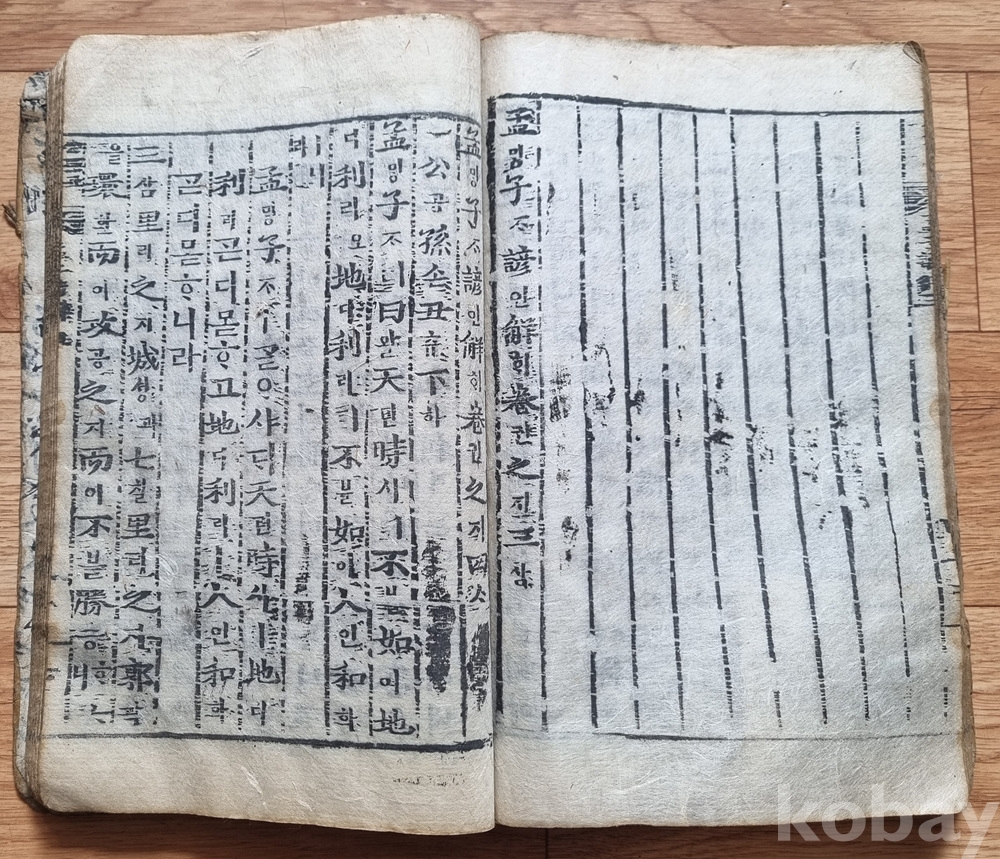 孟ᄆᆡᆼ子ᄌᆞ諺언解ᄒᆡ卷권之지三삼
孟ᄆᆡᆼ子ᄌᆞ諺언解ᄒᆡ卷권之지四ᄉᆞ
公공孫손丑튜下하
孟ᄆᆡᆼ子ᄌᆞㅣ曰왈天텬時시ㅣ不블如여地
디利리오地디利리ㅣ不블如여人인和화
ㅣ니라
孟ᄆᆡᆼ子ᄌᆞㅣᄀᆞᆯᄋᆞ샤ᄃᆡ天텬時시ㅣ地디
利리ᄀᆞᆮ디몯ᄒᆞ고地디利리ㅣ人인和화
ᄀᆞᆮ디몯ᄒᆞ니라
三삼里리之지城셩과七칠里리之지郭곽
을環환ᄒᆞ而이攻공之지而이不블勝승ᄒᆞᄂᆞ니
kobay